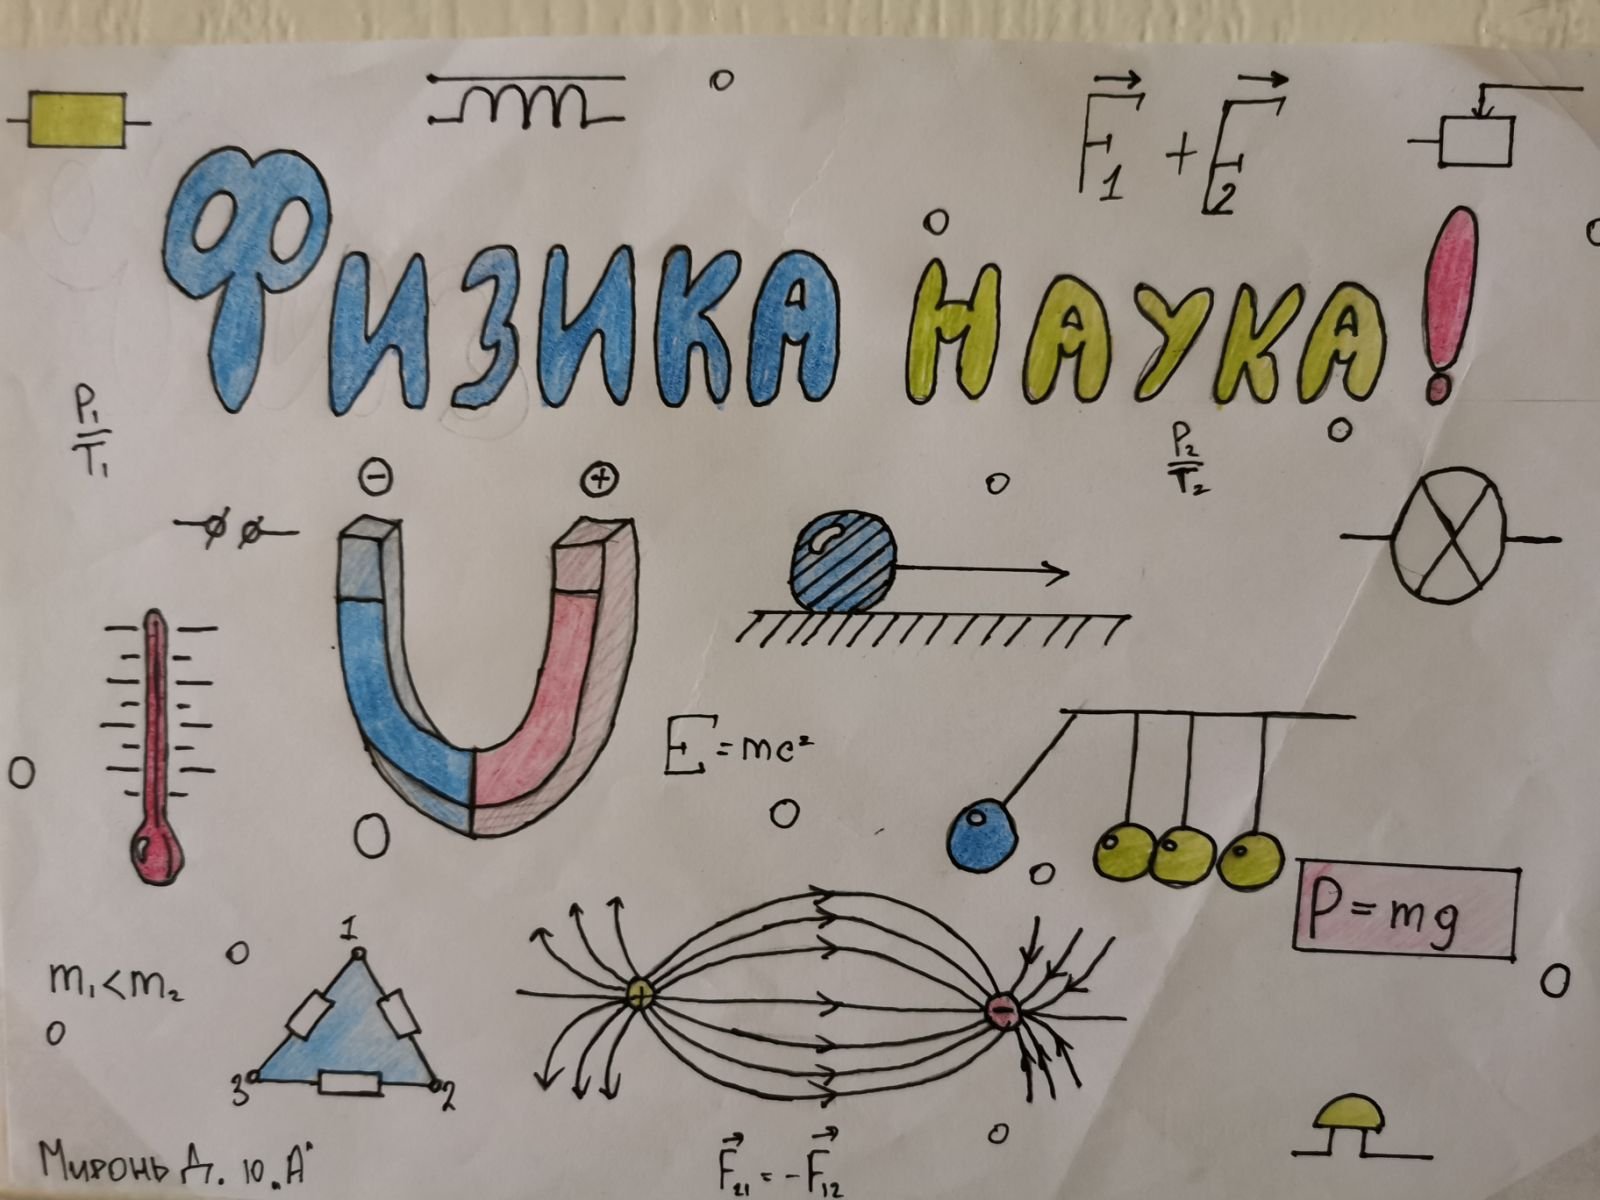 F₁ + F₂
Физика наука!
P₁/T₁
P₂/T₂
− +
E = mc²
P = mg
m₁ < m₂
1
3 2
+ −
Миронь Д. 10 „А"
F₂₁ = −F₁₂